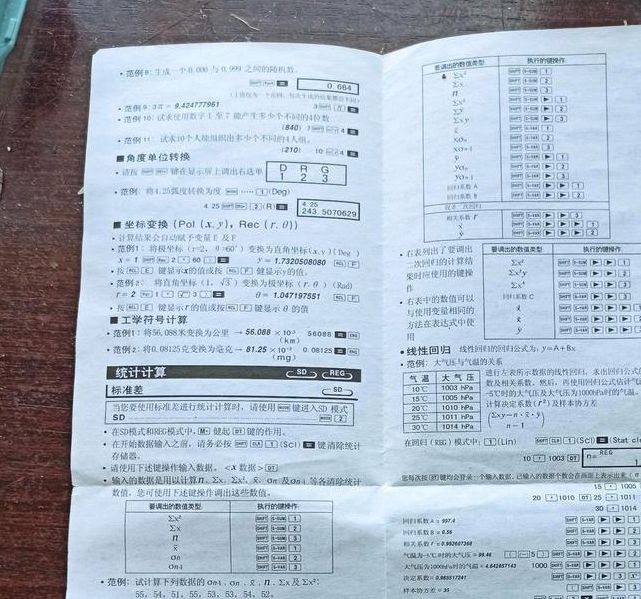 • 范例 8: 生成一个0.000 与 0.999 之间的随机数。
SHIFT Ran# = 0.664
• 范例 9: 3π = 9.424777961 3 SHIFT π =
• 范例 10: 试求使用数字 1 至 7 能产生多少个不同的4位数
(840) 7 SHIFT nPr 4 =
• 范例 11: 试求10个人能组织出多少个不同的4人组。
(210) 10 SHIFT nCr 4 =
■ 角度单位转换
• 请按 SHIFT DRG▸ 键在显示屏上调出右选单
D R G
1 2 3
• 范例: 将4.25弧度转换为度 MODE …… 1 (Deg)
4.25 SHIFT DRG▸ 2 (R) =
4.25
243.5070629
■ 坐标变换 (Pol (x, y), Rec (r, θ))
• 计算结果会自动赋予变量 E 及 F
• 范例1: 将极坐标 (r=2, θ=60°) 变换为直角坐标(x, y) (Deg)
x = 1 SHIFT Rec( 2 , 60 ) = y = 1.7320508080 RCL F
• 按 RCL E 键显示x的值或按 RCL F 键显示y的值。
• 范例2: 将直角坐标 (1, √3) 变换为极坐标 (r, θ) (Rad)
r = 2 Pol( 1 , √ 3 ) = θ = 1.047197551 RCL F
• 按 RCL E 键显示r的值或按 RCL F 键显示 θ 的值
■ 工学符号计算
• 范例1: 将56,088米变换为公里 → 56.088 ×10³ 56088 = ENG
(km)
• 范例2: 将0.08125克变换为毫克 → 81.25 ×10⁻³ 0.08125 = ENG
(mg)
统计计算 SD REG
标准差 SD
当您要使用标准差进行统计计算时, 请使用 MODE 键进入SD 模式
SD MODE 2
• 在SD模式和REG模式中, M+ 健起 DT 键的作用。
• 在开始数据输入之前, 请务必按 SHIFT CLR 1 (Scl) = 键清除统计
存储器。
• 请使用下述键操作输入数据。<x 数据> DT
• 输入的数据是用以计算 n, Σx, Σx², x̄, σn 及 σn-1 等各清除统计
数值, 您可使用下述键操作调出这些数值。
要调出的数值类型 执行的键操作
Σx² SHIFT S-SUM 1
Σx SHIFT S-SUM 2
n SHIFT S-SUM 3
x̄ SHIFT S-VAR 1
σn SHIFT S-VAR 2
σn-1 SHIFT S-VAR 3
• 范例: 试计算下列数据的 σn-1, σn, x̄, n, Σx 及 Σx²:
55, 54, 51, 55, 53, 53, 54, 52。
要调出的数值类型 执行的键操作
Σx² SHIFT S-SUM 1
Σx SHIFT S-SUM 2
n SHIFT S-SUM 3
Σy² SHIFT S-SUM ▶ 1
Σy SHIFT S-SUM ▶ 2
Σxy SHIFT S-SUM ▶ 3
x̄ SHIFT S-VAR 1
xσn SHIFT S-VAR 2
xσn-1 SHIFT S-VAR 3
ȳ SHIFT S-VAR ▶ 1
yσn SHIFT S-VAR ▶ 2
yσn-1 SHIFT S-VAR ▶ 3
回归系数 A SHIFT S-VAR ▶ ▶ 1
回归系数 B SHIFT S-VAR ▶ ▶ 2
相关系数 r SHIFT S-VAR ▶ ▶ 3
x̂ SHIFT S-VAR ▶ ▶ ▶ 1
ŷ SHIFT S-VAR ▶ ▶ ▶ 2
• 右表列出了要调出
二次回归的计算结
果时应使用的键操
作
• 右表中的数值可以
与使用变量相同的
方法在表达式中使
用
要调出的数值类型 执行的键操作
Σx³ SHIFT S-SUM ▶ ▶ 1
Σx²y SHIFT S-SUM ▶ ▶ 2
Σx⁴ SHIFT S-SUM ▶ ▶ 3
回归系数 C SHIFT S-VAR ▶ ▶ 3
• 线性回归 线性回归的回归公式为: y=A+Bx
• 范例: 大气压与气温的关系
气 温 大 气 压
10℃ 1003 hPa
15℃ 1005 hPa
20℃ 1010 hPa
25℃ 1011 hPa
30℃ 1014 hPa
进行左表所示数据的线性回归, 求出回归公式的
数及相关系数。然后, 再使用回归公式估计气
-5℃时的大气压及大气压为1000hPa时的气温。
计算决定系数 (r²) 及样本协方差
(Σxy−n·x̄·ȳ / n−1)
在回归 (REG) 模式中: 1 (Lin) SHIFT CLR 1 (Scl) = Stat cle
10 , 1003 DT n= REG 1
您每次按DT键均会登录一个输入数据。已输入的数据个数会在画面上表示出来 (n
15 , 1005
20 , 1010 DT 25 , 1011
30 , 1014
回归系数 A = 997.4 SHIFT S-VAR ▶ ▶ 1
回归系数 B = 0.56 SHIFT S-VAR ▶ ▶ 2
相关系数 r = 0.982607368 SHIFT S-VAR ▶ ▶ 3
大气压为1000hPa时的气温 = 4.642857143 1000 SHIFT S-VAR ▶ ▶ ▶ 1
决定系数= 0.965517241 SHIFT S-VAR ▶ ▶ 3 x²
样本协方差 = 35